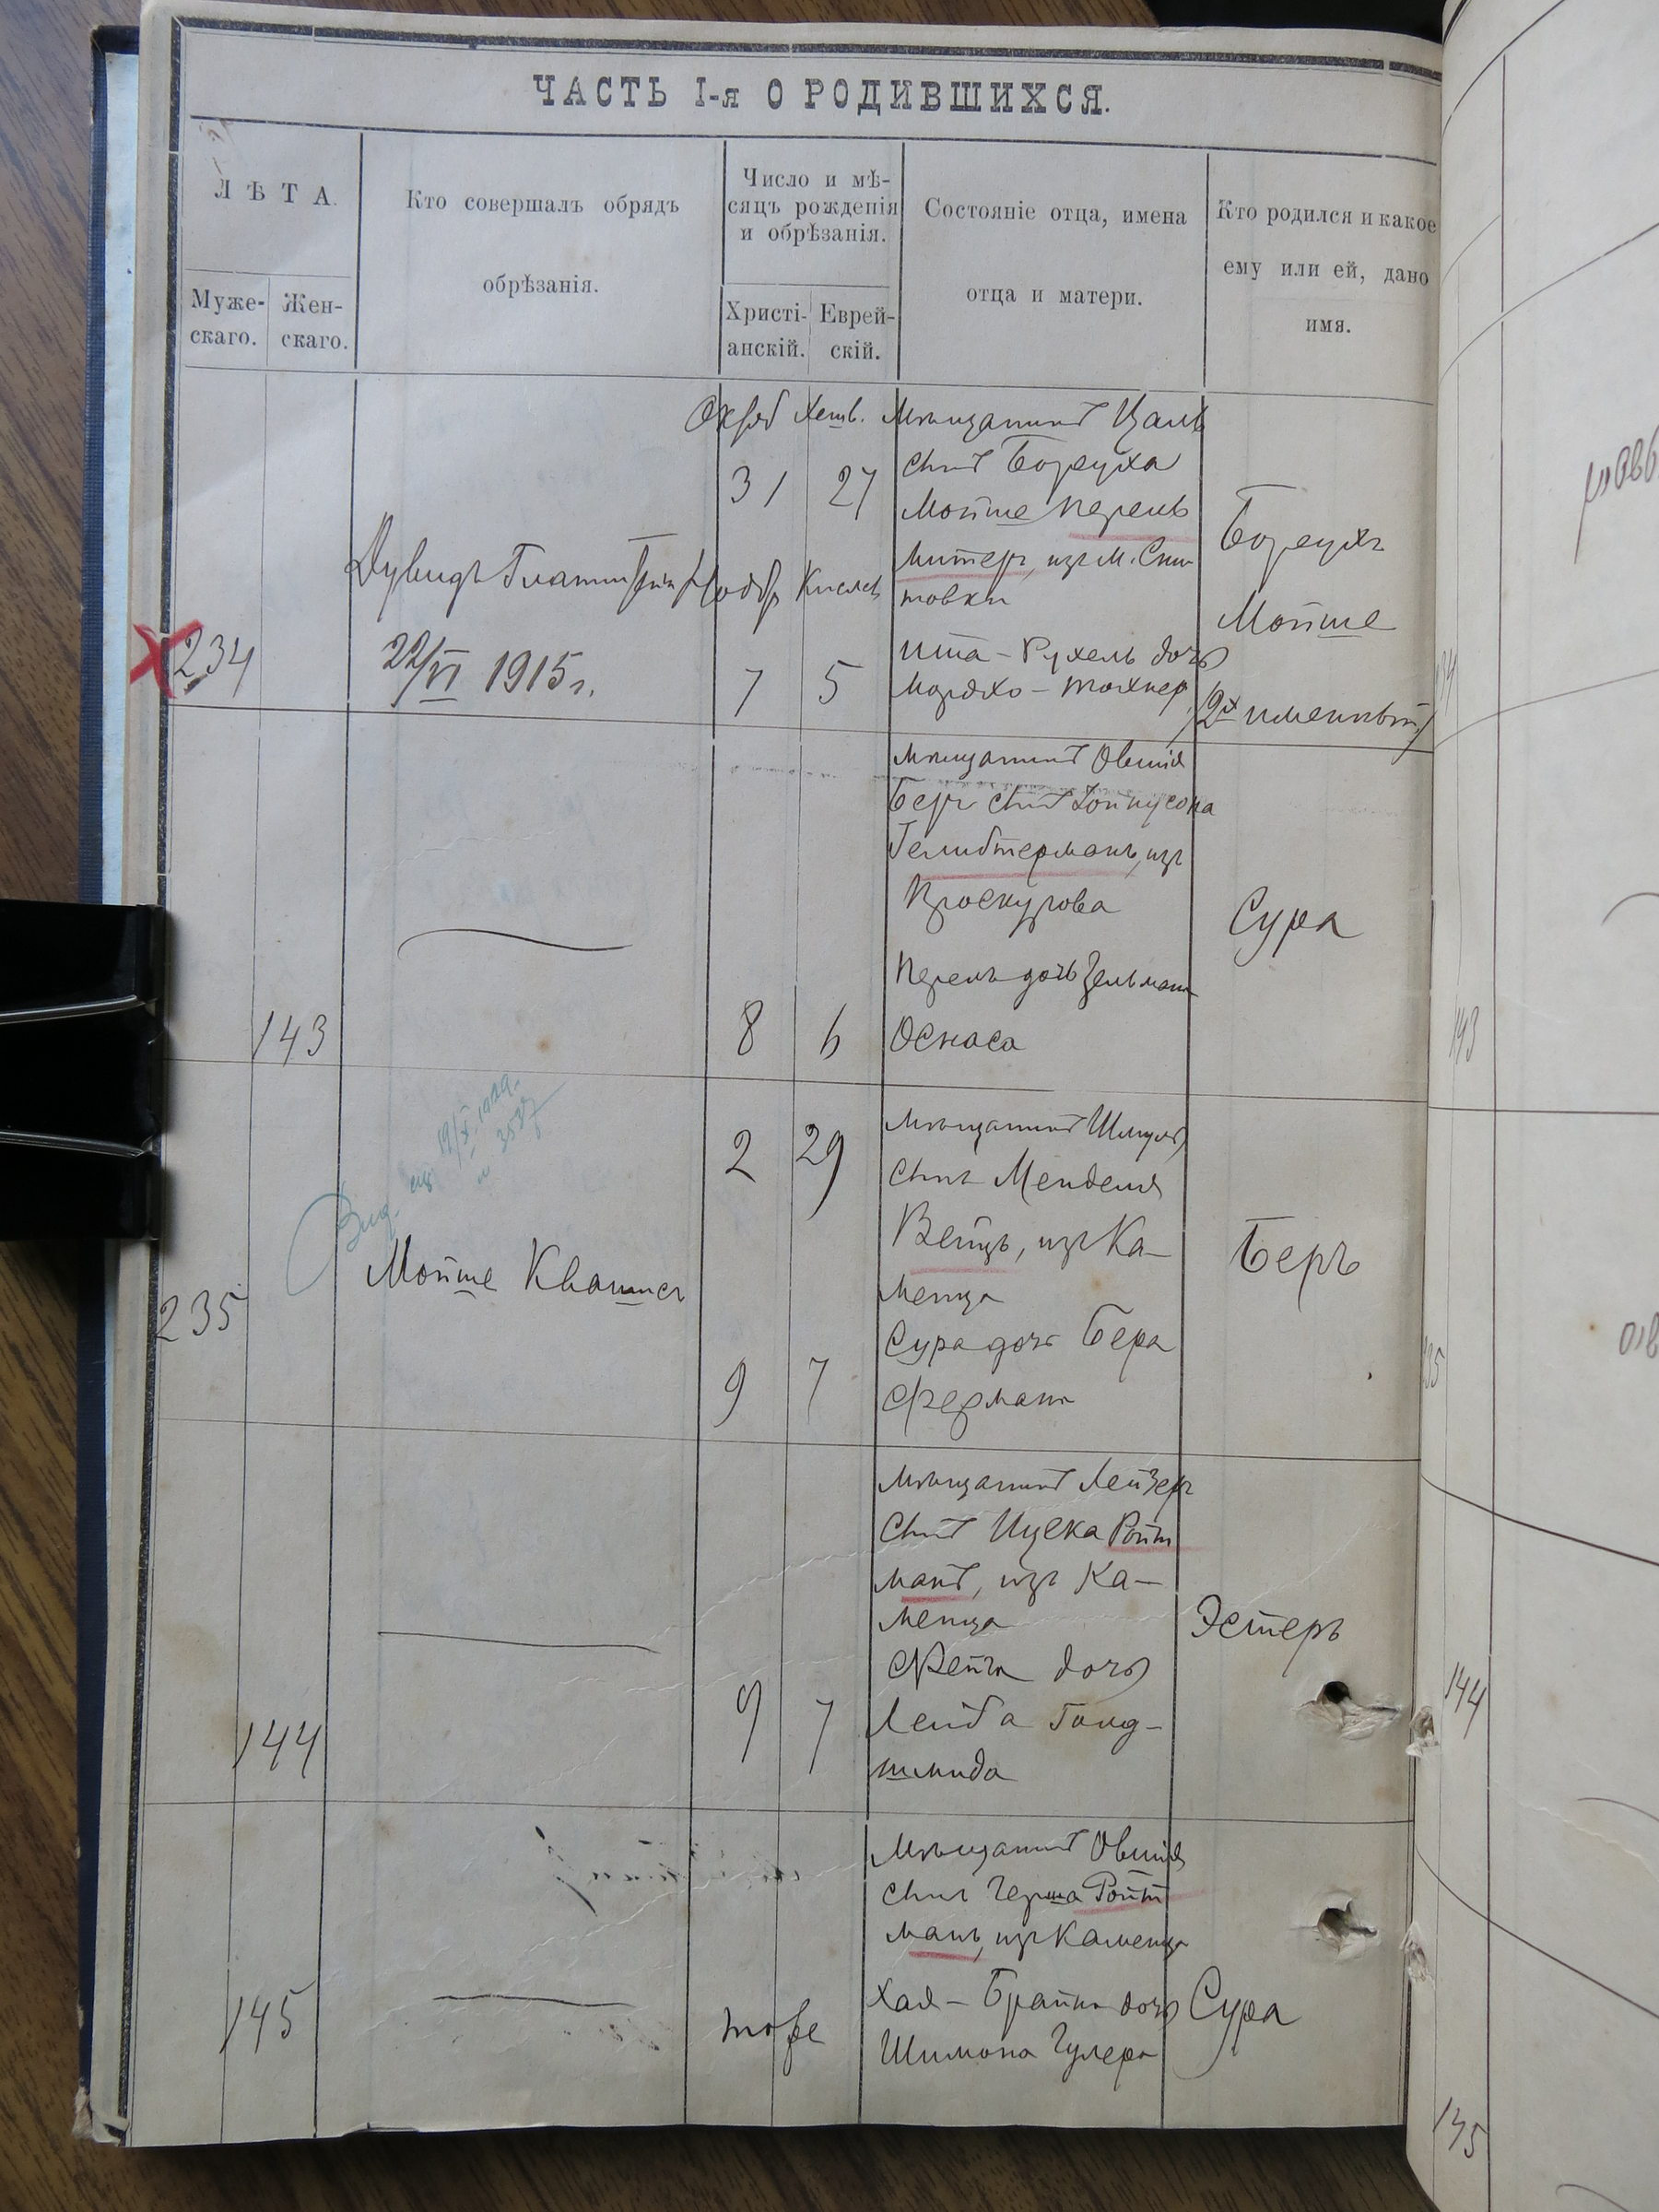 ЧАСТЬ I-я О РОДИВШИХСЯ.
ЛѢТА.
Муже-
скаго.
Жен-
скаго.
Кто совершалъ обрядъ
обрѣзанія.
Число и мѣ-
сяцъ рожденія
и обрѣзанія.
Христі-
анскій.
Еврей-
скій.
Состояніе отца, имена
отца и матери.
Кто родился и какое
ему или ей, дано
имя.
234
Дувидъ
22/VI 1915 г.
Октяб Хешв.
31 27
Ноябр Кислев
7 5
Мѣщанинъ Цаль
сынъ Боруха
Мойше Перель
митеръ, изъ м. Сни
товки
Ита-Рухель дочь
Мордхо-
Борухъ
Мойше
(2х именный)
143
8 6
Мѣщанинъ Овшія
Беръ сынъ
Гелибтерманъ, изъ
Проскурова
Перель дочь Зельмана
Оскаса
Сура
235
Мойше Квашисъ
2 29
9 7
Мѣщанинъ Шмуль
сынъ Менделя
Вейцъ, изъ Ка-
менца
Сура дочь Бера
Ферманъ
Беръ
144
9 7
Мѣщанинъ Лейзеръ
сынъ Ицека Ройт
манъ, изъ Ка-
менца
Фейга дочь
Лейба Голд-
шмида
Эстеръ
145
тоже
Мѣщанинъ Овшія
сынъ Герша Ройт
манъ, изъ Каменца
Хая-Брайна дочь
Шимона Гулера
Сура
143
144
145